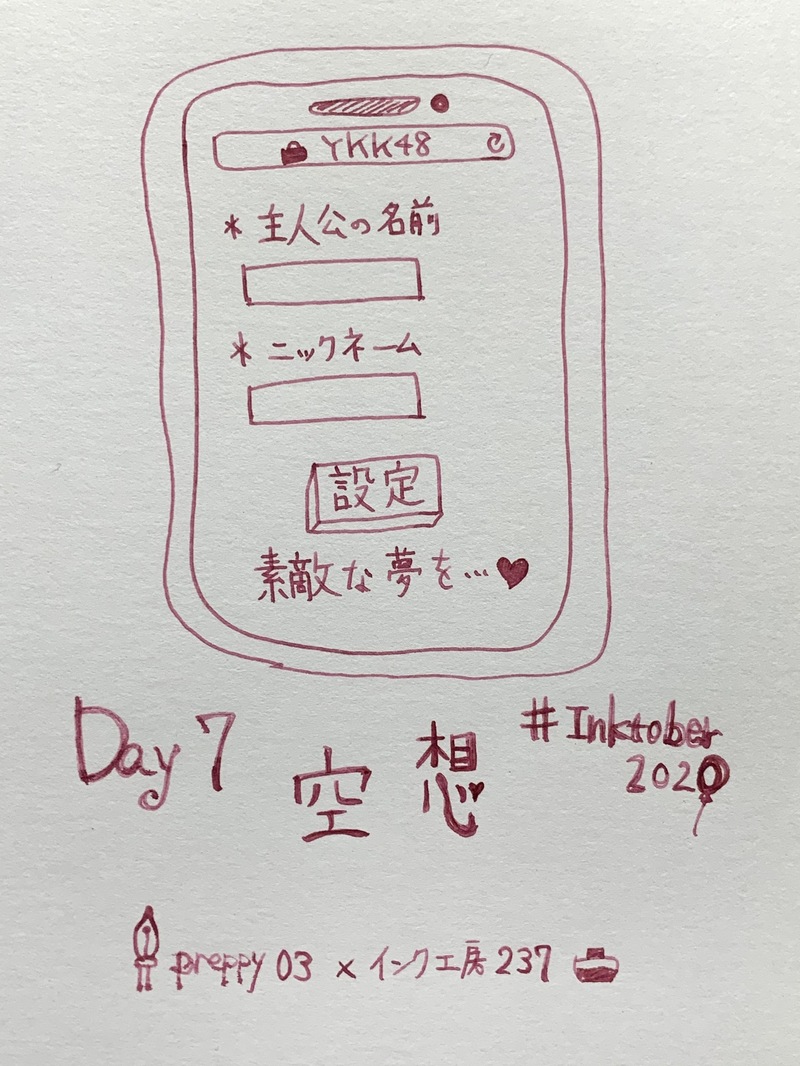 YKK48
* 主人公の名前
* ニックネーム
設定
素敵な夢を…♥
Day 7
空想
#Inktober
2020
preppy 03 × インク工房 237